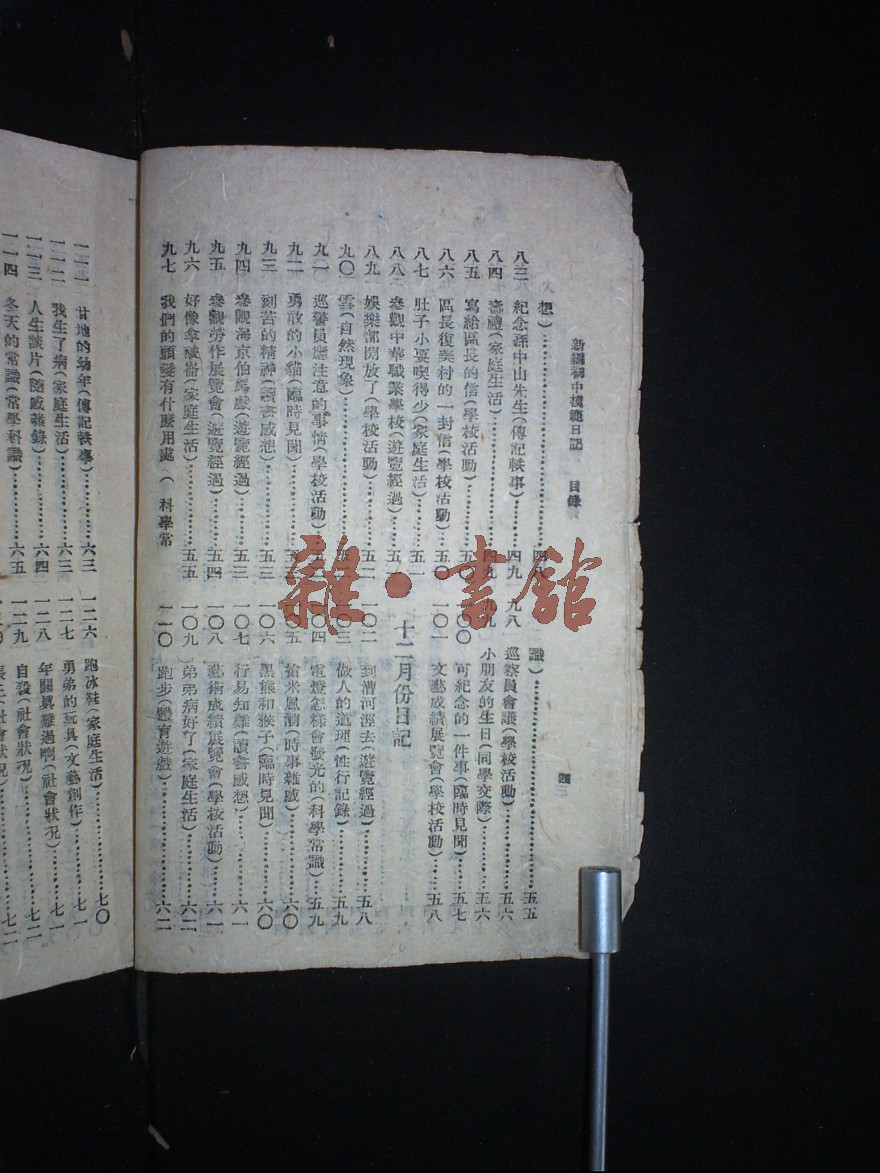 新編初中模範日記 目錄
想)……四八
八三 紀念孫中山先生(傳記軼事)……四九
八四 壽禮(家庭生活)……四九
八五 寫給區長的信(學校活動)……五〇
八六 區長復奕村的一封信(學校活動)……五〇
八七 肚子小要喫得少(家庭生活)……五一
八八 參觀中華職業學校(遊覽經過)……五一
八九 娛樂部開放了(學校活動)……五二
九〇 雲(自然現象)
九一 巡警員應注意的事情(學校活動)
九二 勇敢的小貓(臨時見聞)
九三 刻苦的精神(讀書感想)……五三
九四 參觀海京伯馬戲(遊覽經過)……五三
九五 參觀勞作展覽會(遊覽經過)……五四
九六 好像拿破崙(家庭生活)……五五
九七 我們的頭髮有什麼用處(科學常
識)……五五
九八 巡察員會議(學校活動)……五六
九九 小朋友的生日(同學交際)……五六
一〇〇 可紀念的一件事(臨時見聞)……五七
一〇一 文藝成績展覽會(學校活動)……五八
十二月份日記
一〇二 到漕河涇去(遊覽經過)……五八
一〇三 做人的道理(性行記錄)……五九
一〇四 電燈怎樣會發光的(科學常識)……五九
一〇五 搶米風潮(時事雜感)……六〇
一〇六 黑熊和猴子(臨時見聞)……六〇
一〇七 行易知難(讀書感想)……六一
一〇八 藝術成績展覽會(學校活動)……六一
一〇九 弟弟病好了(家庭生活)……六二
一一〇 跑步(體育遊戲)……六二
甘地的幼年(傳記軼事)……六三
一一二 我生了病(家庭生活)……六三
一一三 人生談片(隨感雜錄)……六四
一一四 冬天的常識(常學科識)……六五
一二六 跑冰鞋(家庭生活)……七〇
一二七 勇弟的玩具(文藝創作)……七一
一二八 年關真難過啊(社會狀況)……七一
一二九 自殺(社會狀況)……七二
(社會狀況)……七二
雜·書館